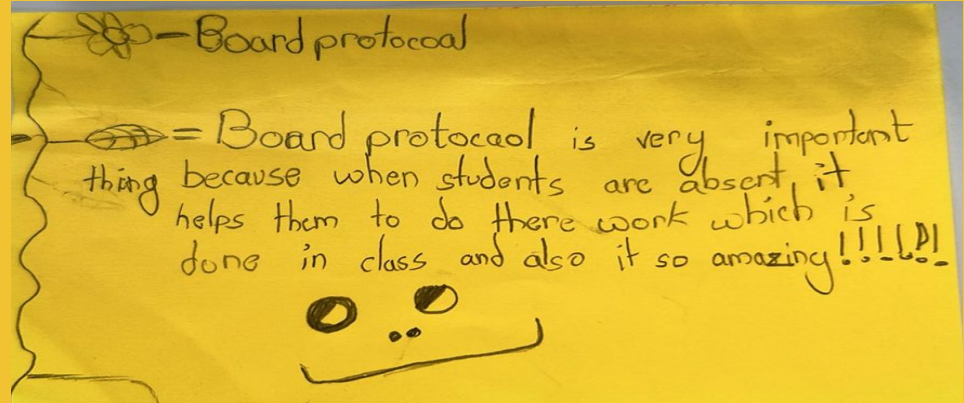 -Board protocoal
= Board protocaol is very important
thing because when students are absent, it
helps them to do there work which is
done in class and also it so amazing!!!!!!!